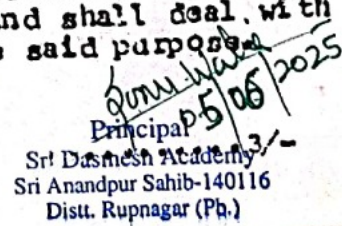 nd shall deal, with
said purpose
05/06/2025
Principal
.......3/-
Sri Dasmesh Academy
Sri Anandpur Sahib-140116
Distt. Rupnagar (Pb.)